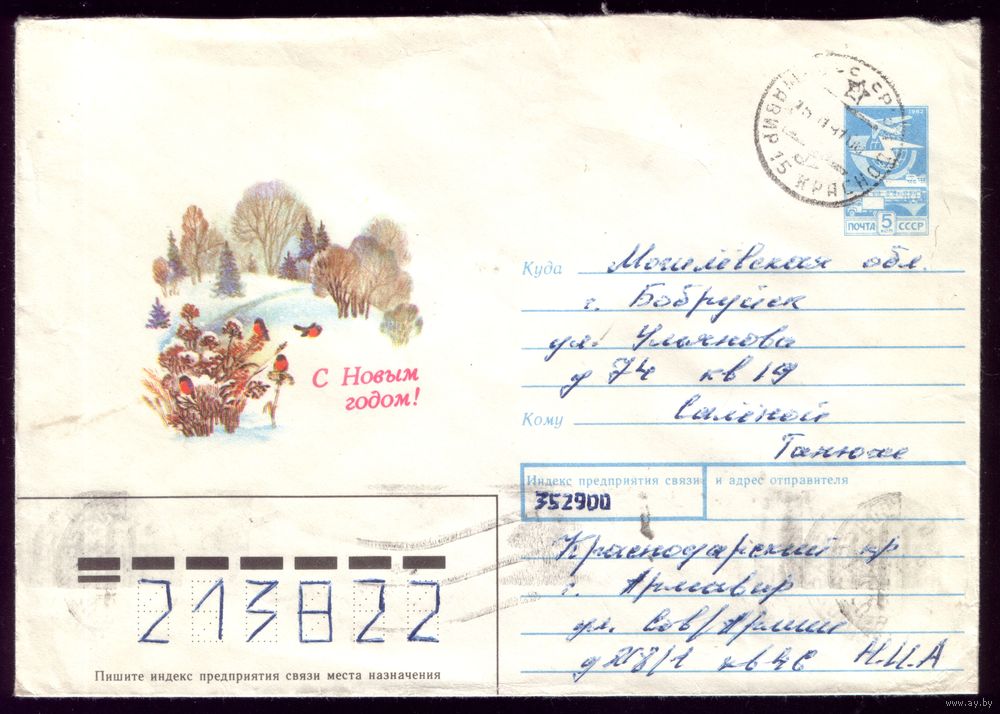 1982
ПОЧТА 5 КОП СССР
КРАСНОД
С Новым
годом!
Куда Могилёвская обл.
г. Бобруйск
ул. Ульянова
д 74 кв 19
Кому Салёной
Танюхе
Индекс предприятия связи и адрес отправителя
352900
Краснодарский кр
г. Армавир
ул. Сов/Армии
Н.И.А
213822
Пишите индекс предприятия связи места назначения
www.ay.by